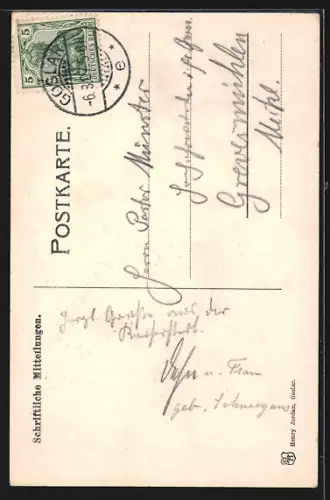 POSTKARTE.
5
5
DEUTSCHES REICH
GOSLAR
-6.3.
* e *
Herrn Pastor Münster
Grevesmühlen
Meckl.
Schriftliche Mitteilungen.
Herzl. Grüße aus der
Kaiserstadt.
Dehn u. Frau
geb. Schneegans
Henry Jordan, Goslar.